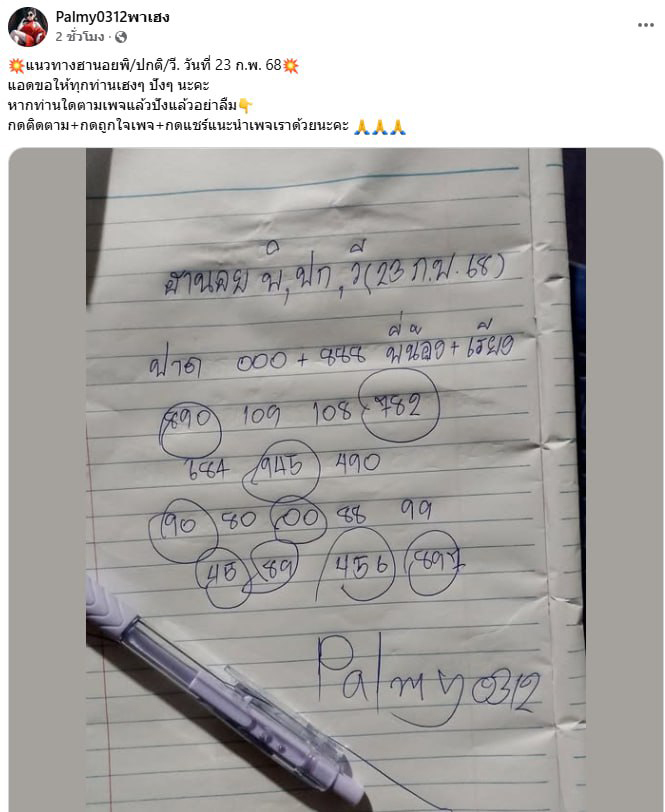 Palmy0312พาเฮง
2 ชั่วโมง
💥แนวทางฮานอยพิ/ปกติ/วี. วันที่ 23 ก.พ. 68💥
แอดขอให้ทุกท่านเฮงๆ ปังๆ นะคะ
หากท่านใดตามเพจแล้วปังแล้วอย่าลืม👇
กดติดตาม+กดถูกใจเพจ+กดแชร์แนะนำเพจเราด้วยนะคะ 🙏🙏🙏
ฮานอย พิ, ปก, วี (23 ก.พ. 68)
000 + 888 พี่น้อง + เรียง
890 109 108 782
684 945 490
90 80 00 88 99
45 89 456 897
Palmy0312